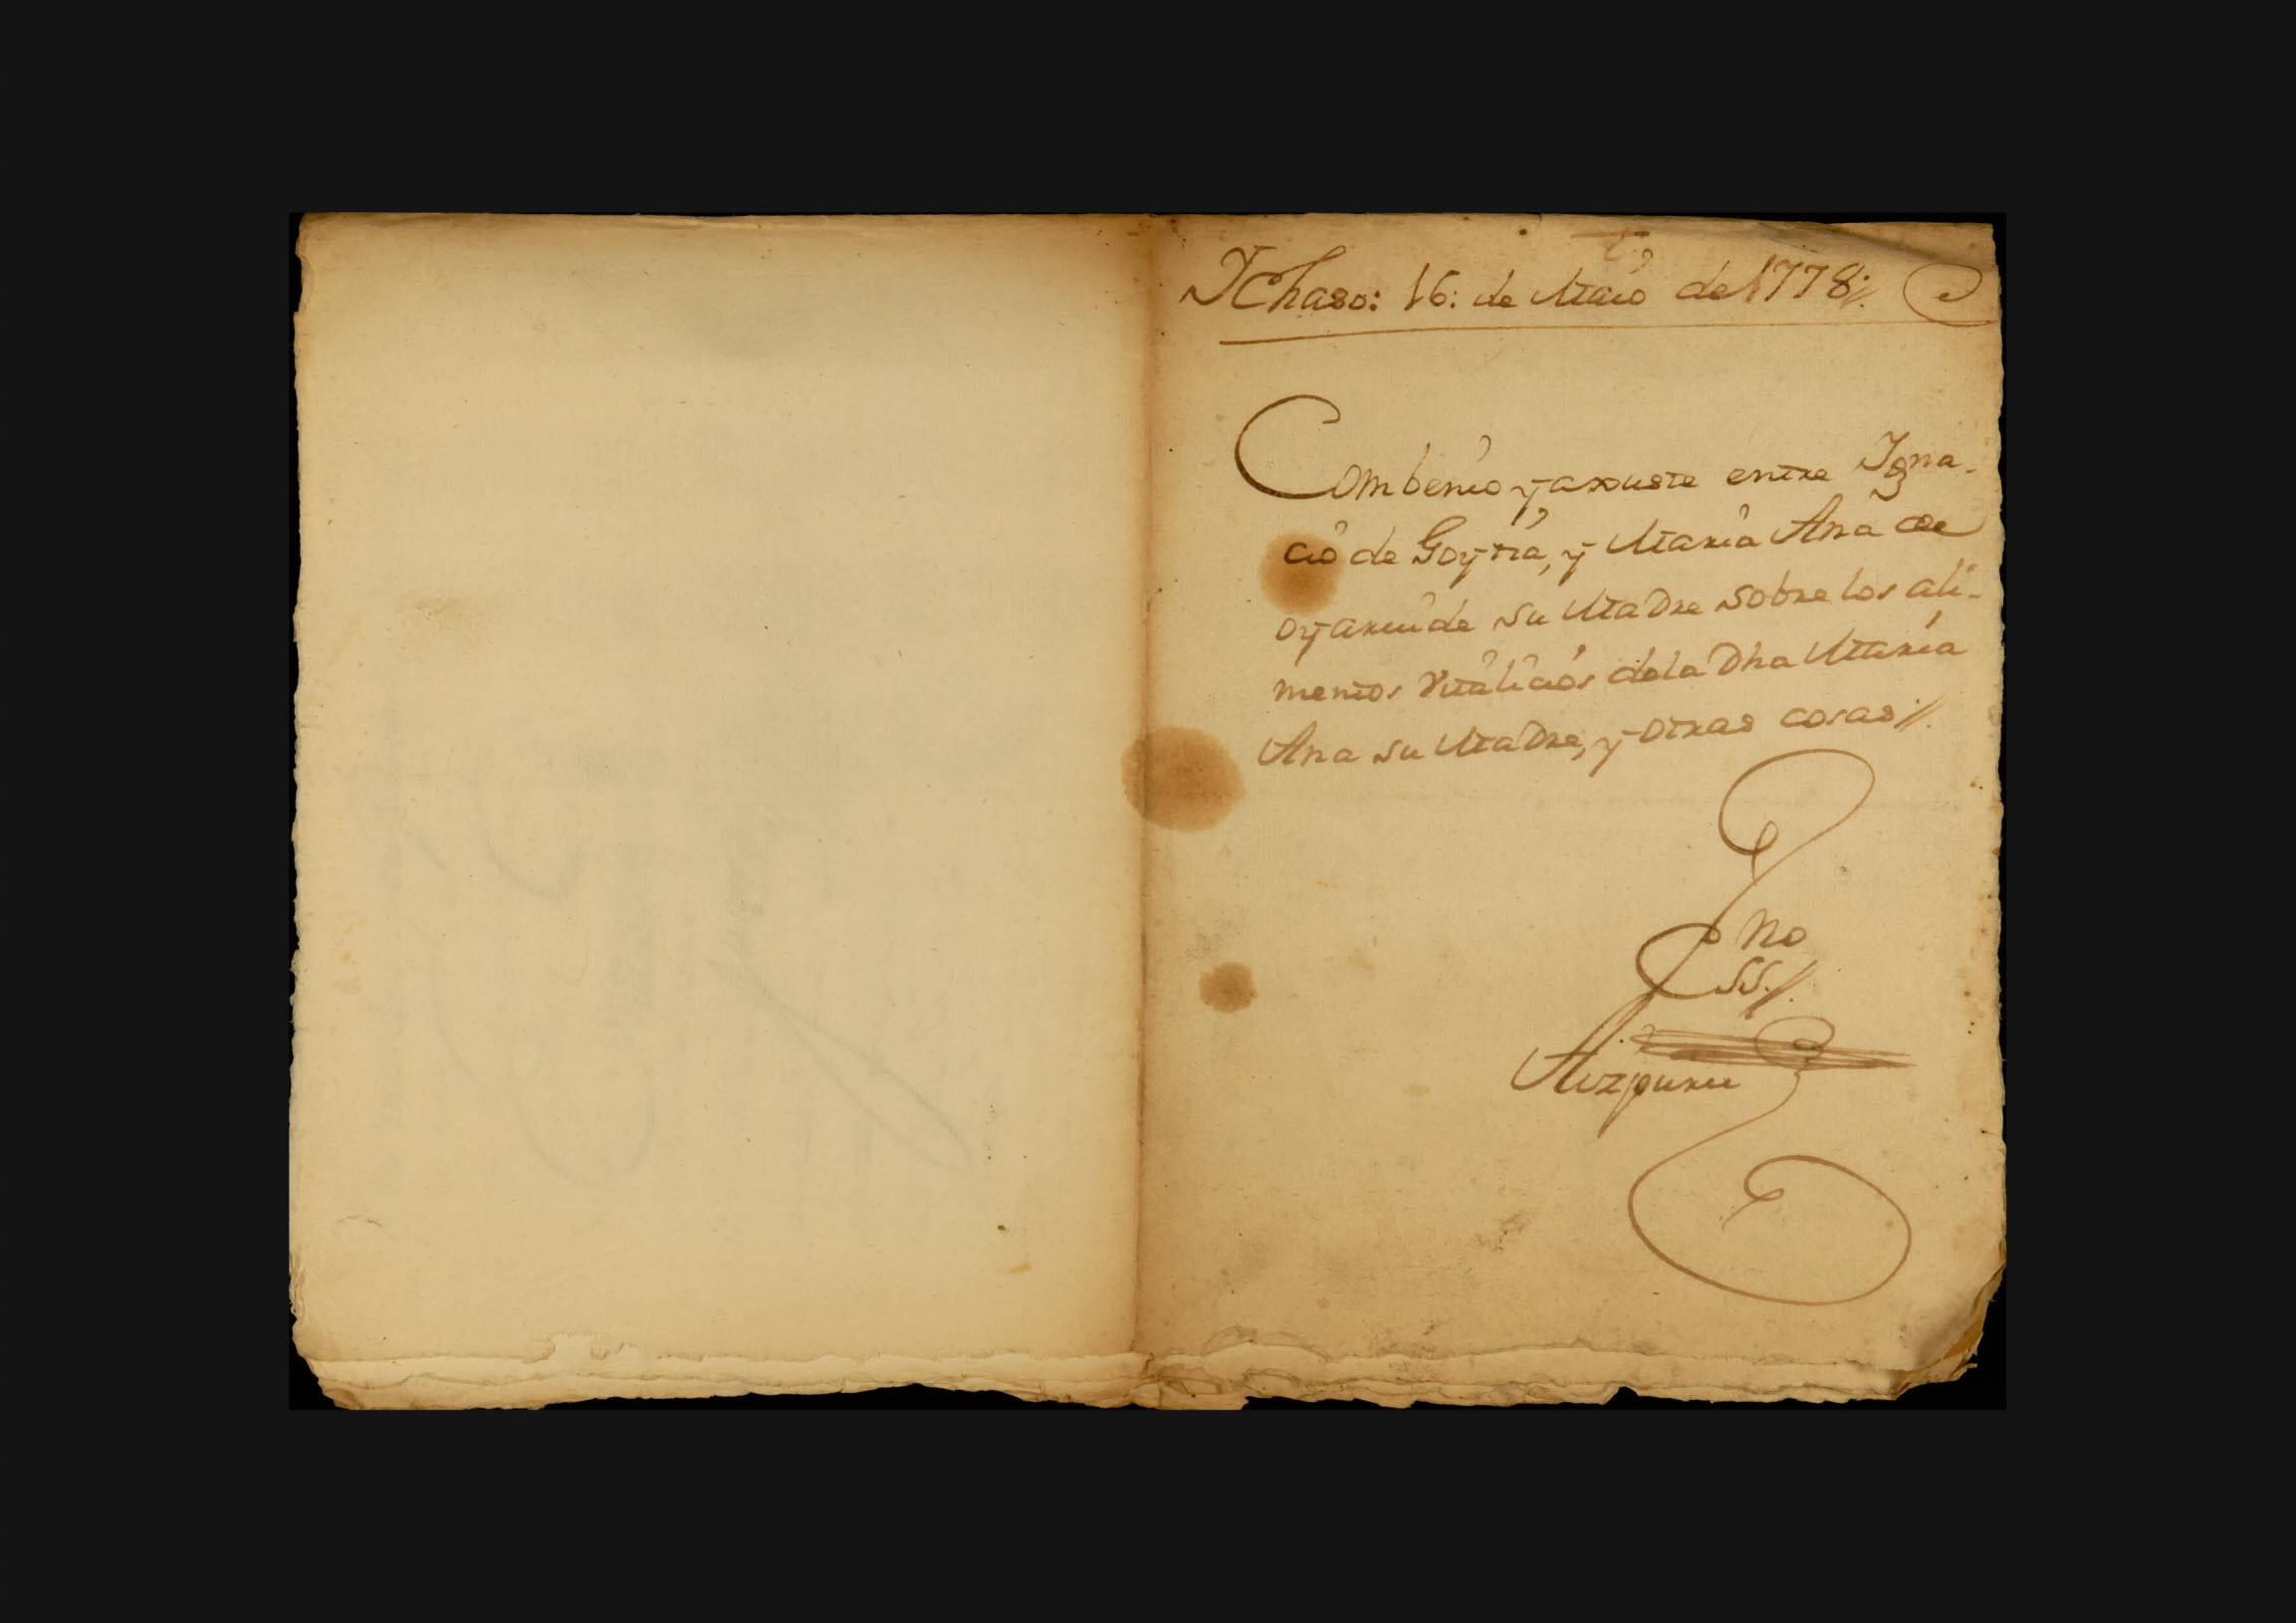 Ychaso: 16: de Maio de 1778//.
Combenio y axuste entre Igna-
cio de Goytia, y Maria Ana de
oyarcuide su Madre sobre los ali-
mentos Vitalicios dela Dha Maria
Ana su Madre, y otras cosas//.
no
SS.//.
Aizpuru